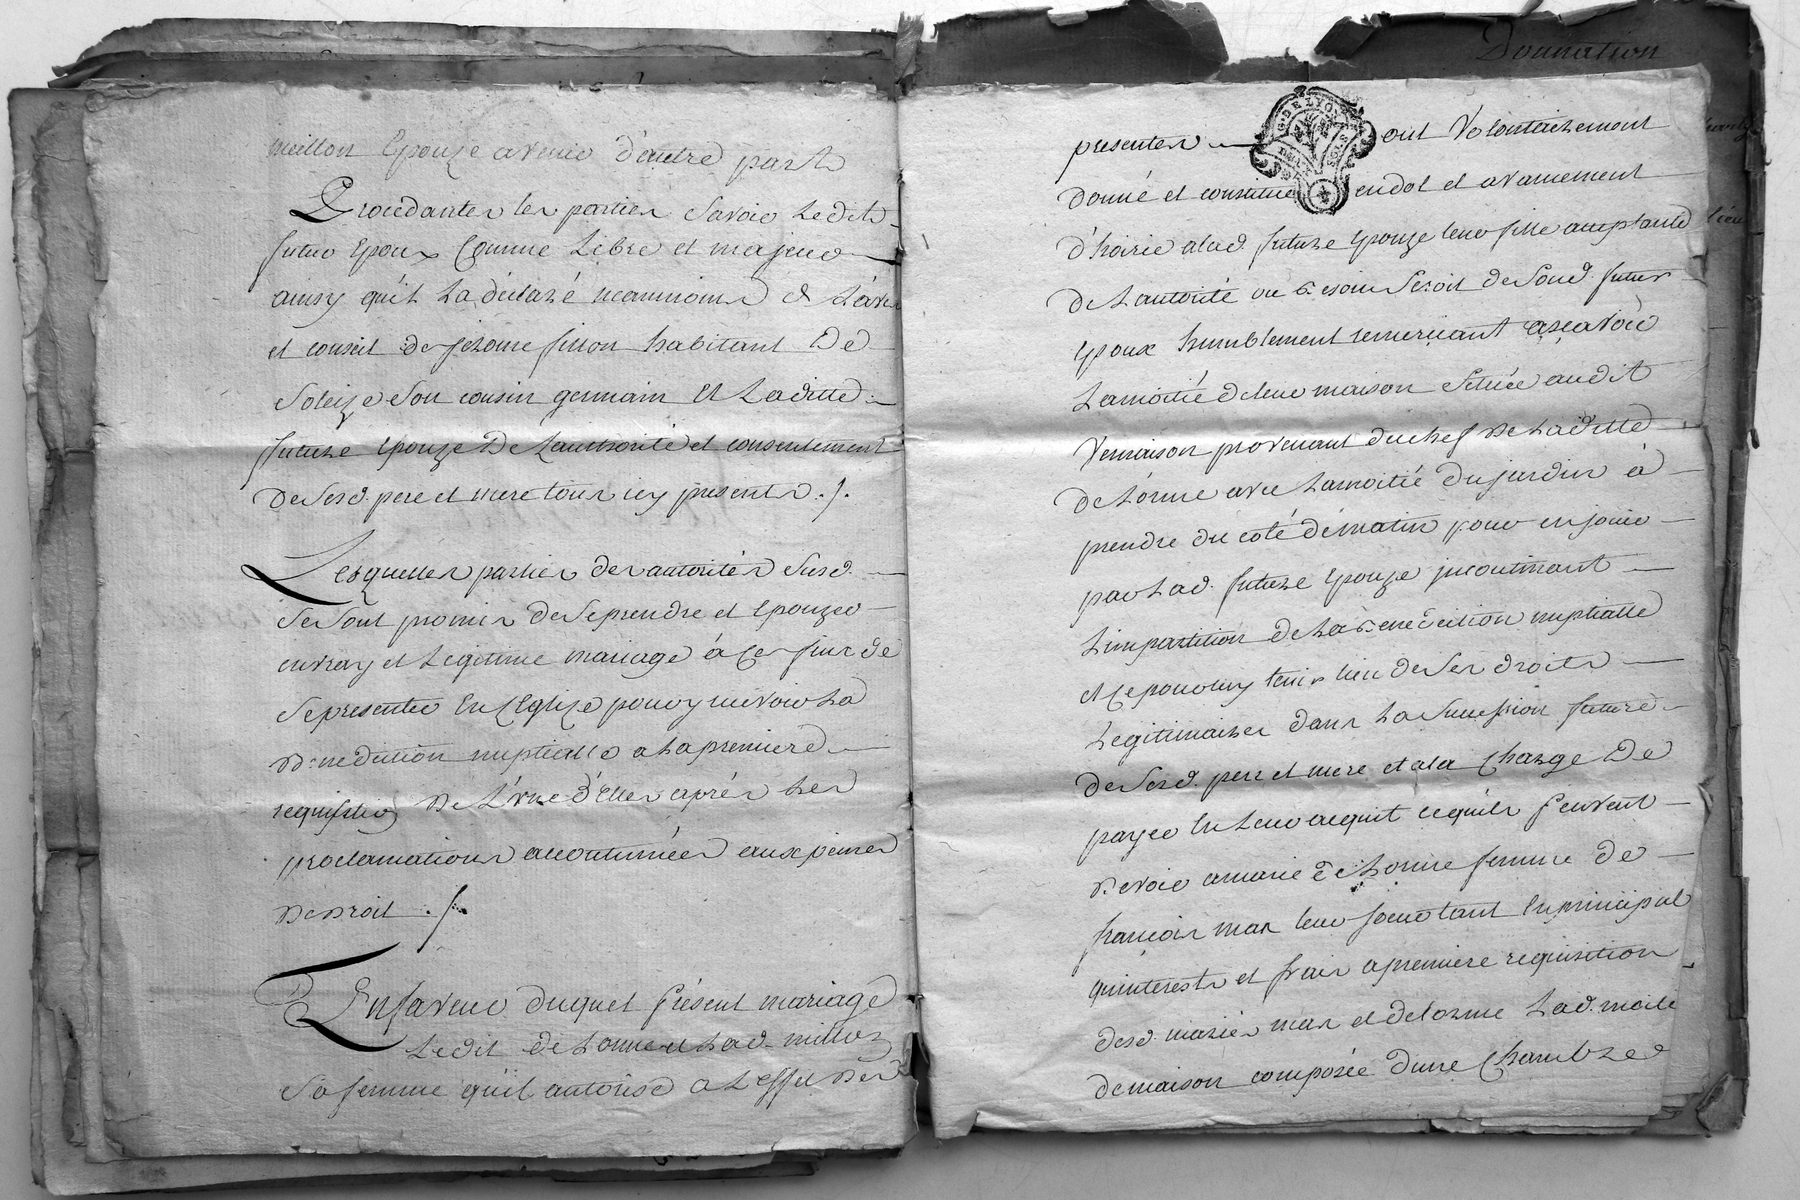 meillon Epouze avenir d'autre part
Procedantes les parties Savoir Ledit
futur Epoux Comme Libre et majeur
ainsy qu'il La déclaré neanmoins de L'avis
et conseil de jerome fillon habitant de
Soleize Son cousin germain Et Laditte
future Epouze De Lauthorité et consentement
de Sesd. pere et mere tous icy presents ./.
Lesquelles parties des autorités Susd.
Se Sont promis de Se prendre et Epouzer
en vray et Legitime mariage à Ces fins de
Se presenter En L'Eglize pour y recevoir La
Benediction nuptialle a La premiere
requisition De L'une d'Elles après Les
proclamations accoutumées aux peines
De Droit ./.
En faveur duquel Présent mariage
Ledit deLorme et Lad. millon
Sa femme qu'il autorise a L'effet Des
Donnation
presentes ont Volontairement
donné et constitué en dot et avancement
d'hoirie a lad. future Epouze leur fille acceptante
de L'autorité ou Besoin Seroit de Sond. futur
Epoux humblement remerciant asçavoir
La moitié de leur maison Scituée audit
Vernaison provenant du chef De Laditte
deLorme avec La moitié du jardin à
prendre du coté de matin pour en jouir
par Lad. future Epouze incontinant
L'impartition de La Benediction nuptialle
et Ce pour Luy tenir lieu de Ses droits
Legitimaires dans La Succession future
de Sesd. pere et mere et a la Charge De
payer En Leur acquit ce qu'ils peuvent
Devoir a marie deLorme femme de
francois mas leur soeur tant En principal
qu'interests et frais a premiere requisition
desd. mariés mas et delorme Lad. moitié
de maison composée d'une Chambre
G. DE LYON